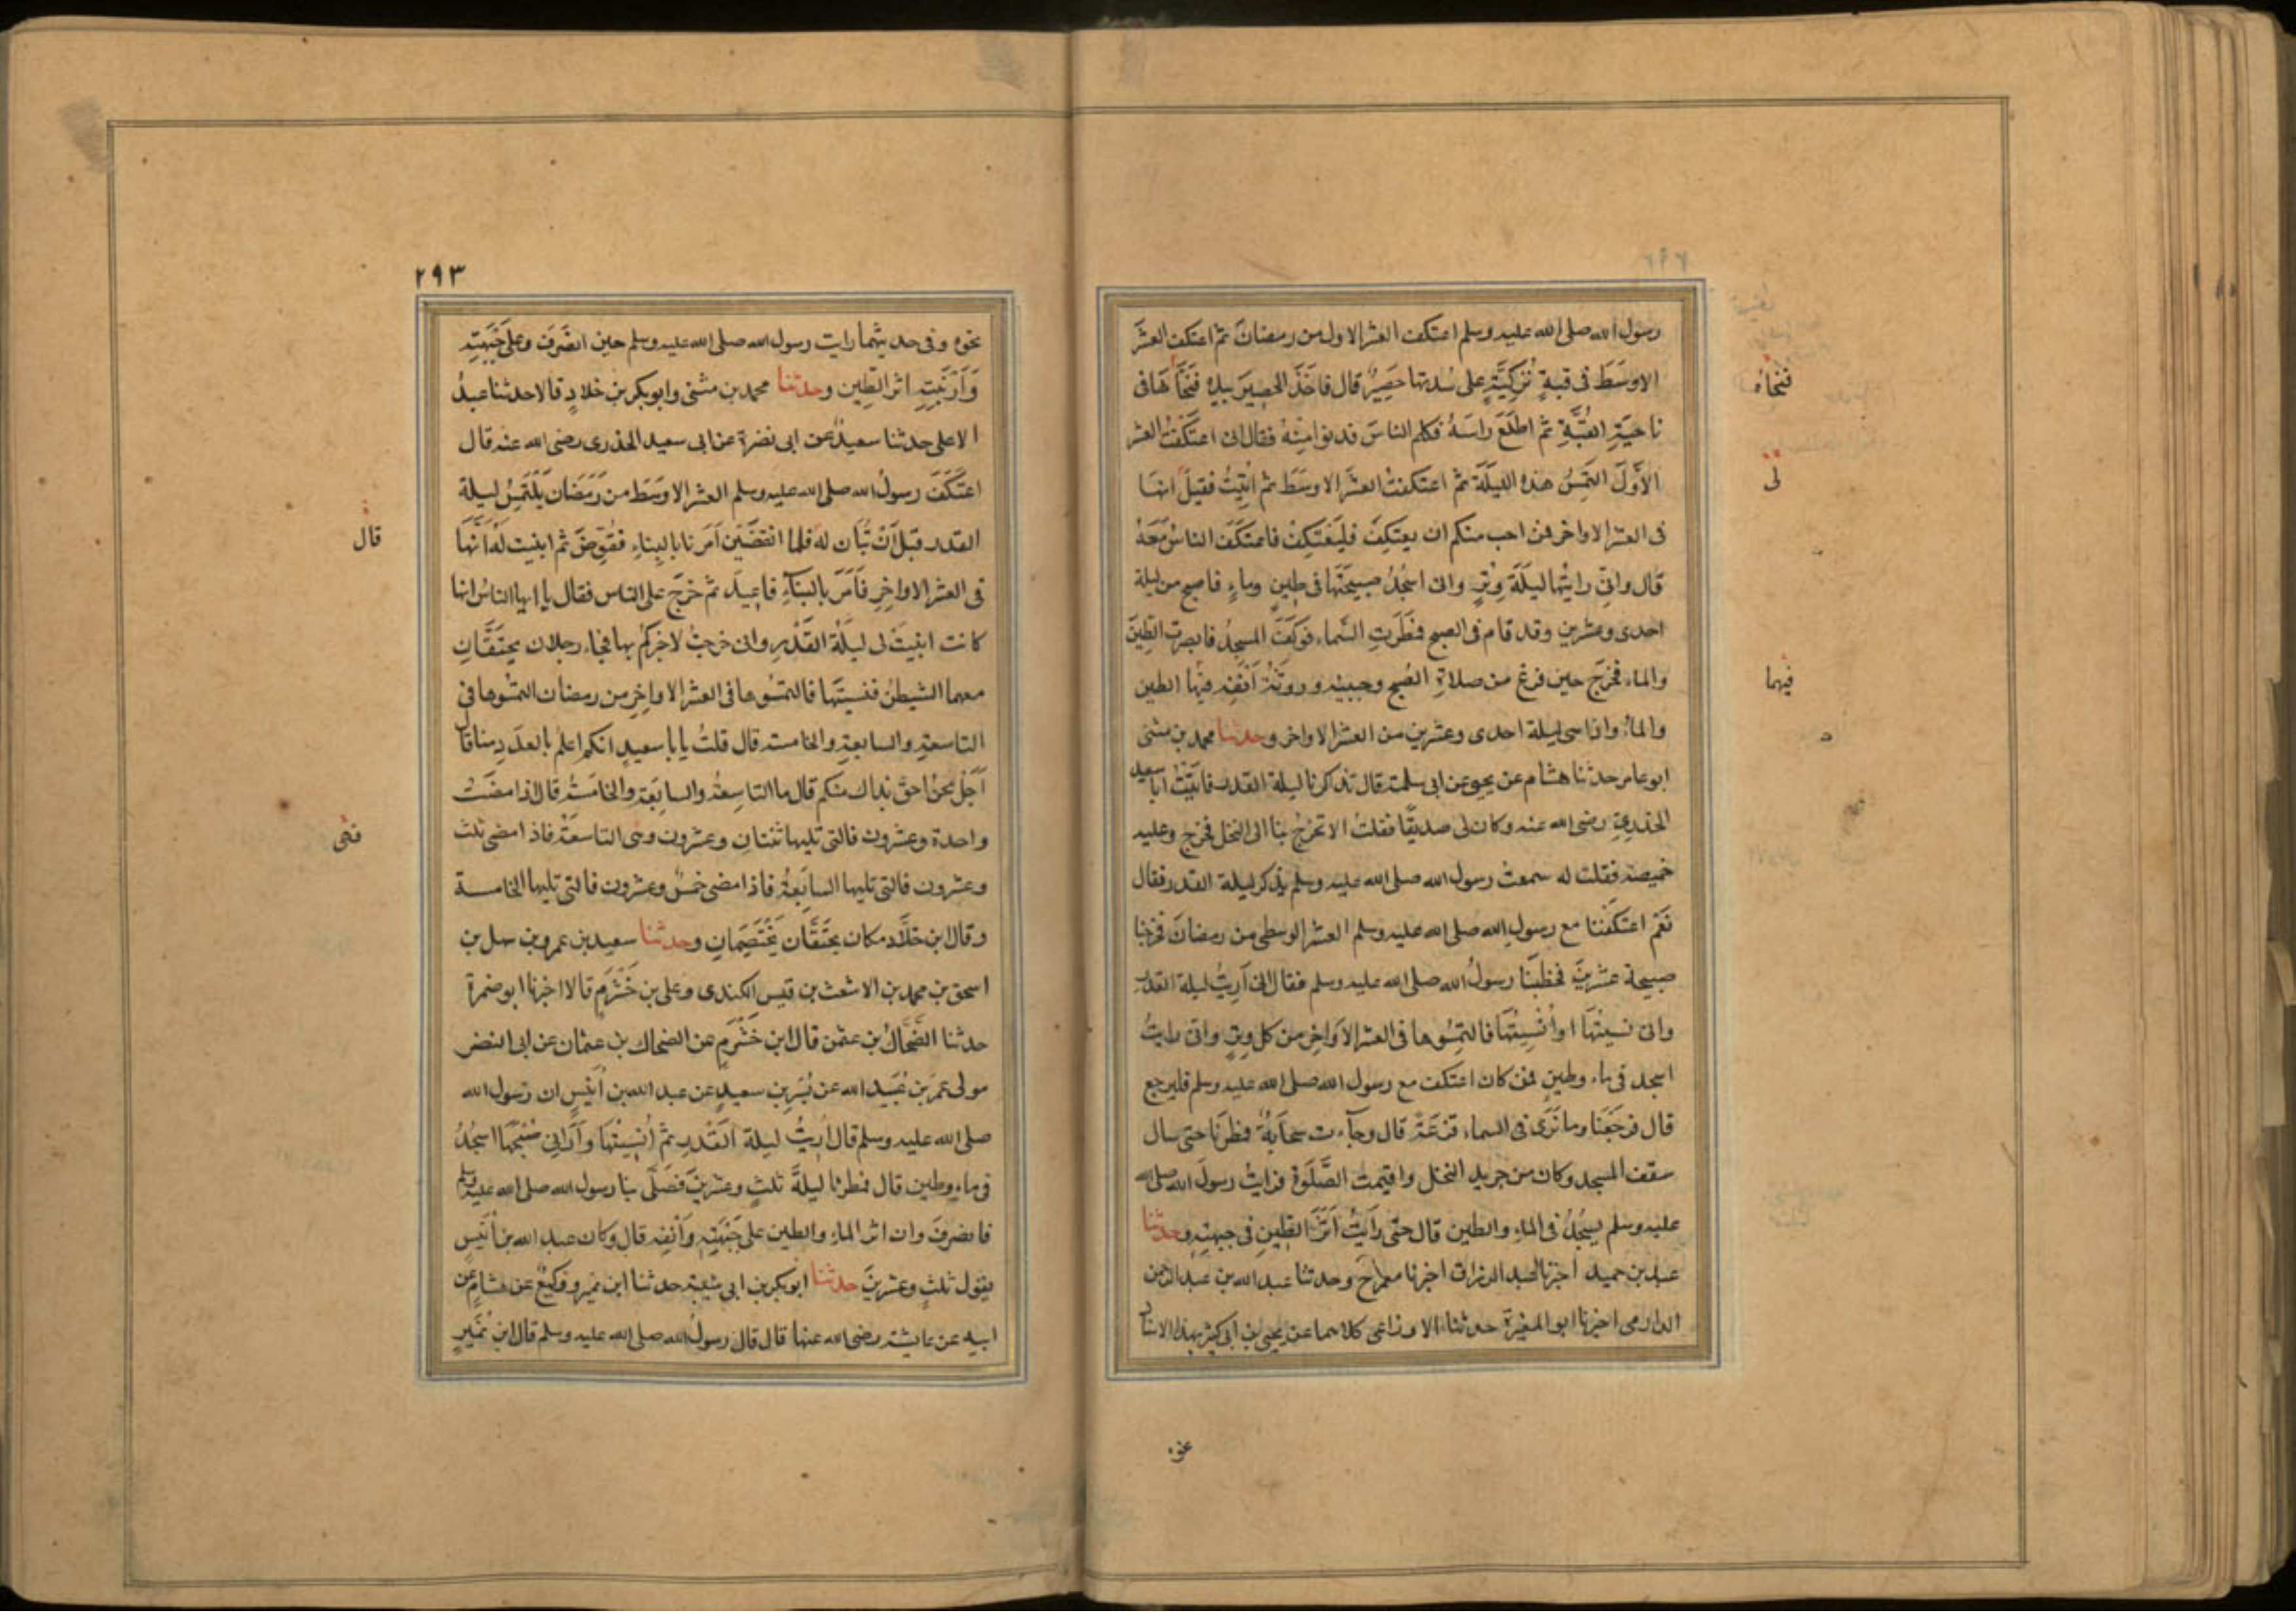 رسول الله صلى الله عليه وسلم اعتكف العشر الاول من رمضانَ ثم اعتكف العشرَ
الاوسَطَ فى قبةٍ تُركِيَّةٍ على سُدتها حَصِيرٌ قال فاخَذَ الحصِيرَ بيدِهِ فَنَحَّاهَا فى
فنحاه
ناحيَةِ القُبَّةِ ثم اطلَعَ راسَهُ فكلم الناسَ فدنوا مِنهُ فقال انى اعتَكَفْتُ العشر
الأَوَّلَ التَمِسُ هذه الليلَةَ ثم اعتكفتُ العشرَ الاوسَطَ ثم اُتِيتُ فقيلَ انها
لى
فى العشر الاواخر فمن احب منكم ان يعتكِفَ فليَعْتَكِفْ فاعتَكَفَ الناسُ مَعَهُ
قال وانِّى رايتُها ليلَةَ وِتْرٍ وانى اسجُدُ صبيحَتَهَا فى طِينٍ وماءٍ فاصبح من ليلة
احدى وعشرين وقد قام فى الصبح فمَطَرَتِ السَّماء فوكَفَ المسجِدُ فابصرتُ الطينَ
والماء فخرَجَ حين فرغ من صلاةِ الصُّبح وجبينه وروثَةُ اَنْفِهِ فيها الطين
فيهما
والماءُ واذا هى ليلة احدى وعشرين من العشر الاواخر وحدثنا محمد بن مثنى
ابو عامر حدثنا هشام عن يحيى عن ابى سلمة قال تذاكرنا ليلة القدر فاتَيْتُ ابا سعيد
الخدرىِّ رضى الله عنه وكان لى صديقًا فقلتُ الا تخرُجُ بنا الى النخل فخرج وعليه
خميصة فقلت له سمعتَ رسول الله صلى الله عليه وسلم يذكر ليلة القدر فقال
نَعَمْ اعتكَفْنا مع رسولِ الله صلى الله عليه وسلم العشر الوسطى من رمضانَ فخرجنا
صبيحة عشرِينَ فخطَبَنا رسولُ الله صلى الله عليه وسلم فقال انى اُرِيتُ ليلة القدر
وانى نسيتُهَا او اُنْسِيتُهَا فالتَمِسُوها فى العشر الاَوَاخِرِ من كل وِتر وانى رايتُ
اسجد فى ماء وطينٍ فمن كان اعتكف مع رسول الله صلى الله عليه وسلم فليرجع
قال فرجَعْنا وما نَرَى فى السماء قزعَةً قال وجآءت سحَابَةٌ فمطرنَا حتى سال
سقف المسجد وكان من جريدِ النخل واقيمت الصَّلَوةُ فرايتُ رسولَ الله صلى الله
عليه وسلم يسجُدُ فى الماءِ والطين قال حتى رَاَيتُ اَثَرَ الطينِ فى جبهتِهِ وحدثنا
عبد بن حميد اخبرنا عبد الرزاق اخبرنا معمر ح وحدثنا عبد الله بن عبد الرحمن
الدارمى اخبرنا ابو المغيرة حدثنا الاوزاعى كلاهما عن يحيى بن ابى كثير بهذا الاسناد
نحوه
٢٩٣
نحوه وفى حديثهما رايت رسول الله صلى الله عليه وسلم حين انصَرَفَ وعلى جَبْهَتِهِ
وَاَرْنَبَتِهِ اثر الطِّين وحدثنا محمد بن مثنى وابو بكر بن خلادٍ قالا حدثنا عبدُ
الاعلى حدثنا سعيدٌ عن ابى نضرة عن ابى سعيد الخدرى رضى الله عنه قال
اعتكَفَ رسولُ الله صلى الله عليه وسلم العشر الاوسَط من رَمَضَان يلْتَمِسُ ليلة
القدر قبل اَنْ تُبَان له فلما انقضَيْنَ اَمَرَنا بالبِناءِ فقُوِّضَ ثم ابنيت لَهُ اَنَّهَا
قال
فى العشر الاواخِرِ فاَمَرَ بالبَنَآءِ فاُعِيدَ ثم خَرَجَ على الناس فقال يا ايها الناسُ انها
كانت ابنيتْ لى ليلَةُ القَدْرِ وانى خرجتُ لاخبركُم بها فجاء رجلان يحتَقَّانِ
معهما الشيطنُ فنسيتُها فالتمسُوها فى العشر الاواخِرِ من رمضان التمسُوها فى
التاسعَةِ والسابعةِ والخامسة قال قلتُ يابا سعيدٍ انكم اعلم بالعدَدِ منا قال
اَجَلْ نحنُ احق بذاك منكم قال ما التاسِعةُ والسابعَةُ والخامسةُ قال اذا مضَتْ
واحدة وعشرون فالتى تليها ثنتانِ وعشرون وهى التاسعَةُ فاذا مضى ثلث
فهى
وعشرون فالتى تليها السابعَةُ فاذا مضى خمسٌ وعشرون فالتى تليها الخامسة
وقال ابن خلَّاد مكان يحتَقَّان يَخْتَصِمَانِ وحدثنا سعيد بن عمرو بن سهل بن
اسحق بن محمد بن الاشعث بن قيس الكندى وعلى بن خَشْرَمٍ قالا اخبرنا ابو ضمرة
حدثنا الضحاكُ بن عثمن قال ابن خَشْرَمٍ عن الضحاك بن عثمان عن ابى النضر
مولى عمَرَ بن عُبَيد الله عن بُسْرِ بن سعيدٍ عن عبد الله بن اُنَيسٍ ان رسول الله
صلى الله عليه وسلم قال اُرِيتُ ليلة القَدْرِ ثم اُنسِيتُهَا وَاَرَانِى صُبْحَهَا اسجُدُ
فى ماء وطين قال فمطرنا ليلَةَ ثلثٍ وعشرينَ فَصَلَّى بنا رسول الله صلى الله عليه وسلم
فانصرفَ وان اثر الماءِ والطين على جَبْهَتِهِ وَاَنْفِهِ قال وكان عبد الله بن اُنَيْسٍ
يقول ثلثٍ وعشرينَ حدثنا ابو بكر بن ابى شيبة حدثنا ابن نمير ووكيعٌ عن هشامٍ عن
ابيه عن عايشة رضى الله عنها قال قال رسولُ الله صلى الله عليه وسلم قال ابن نُمَيرٍ